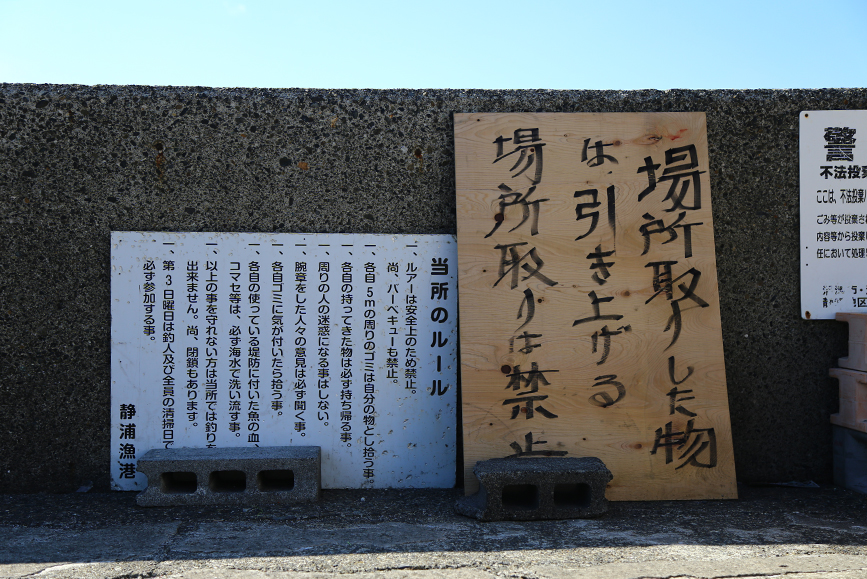 当所のルール
一、ルアーは安全上のため禁止。
尚、バーベキューも禁止。
一、各自5mの周りのゴミは自分の物とし拾う事。
一、各自の持ってきた物は必ず持ち帰る事。
一、周りの人の迷惑になる事はしない。
一、腕章をした人々の意見は必ず聞く事。
一、各自ゴミに気が付いたら拾う事。
一、各自の使っている堤防に付いた魚の血、
コマセ等は、必ず海水で洗い流す事。
一、以上の事を守れない方は当所では釣りを
出来ません。尚、閉鎖もあります。
一、第3日曜日は釣人及び全員の清掃日で
必ず参加する事。
静浦漁港
場所取りした物
は、引き上げる
場所取りは禁止
警
不法投棄
ここは、不法投棄
ごみ等が投棄され
内容等から投棄
任において処理